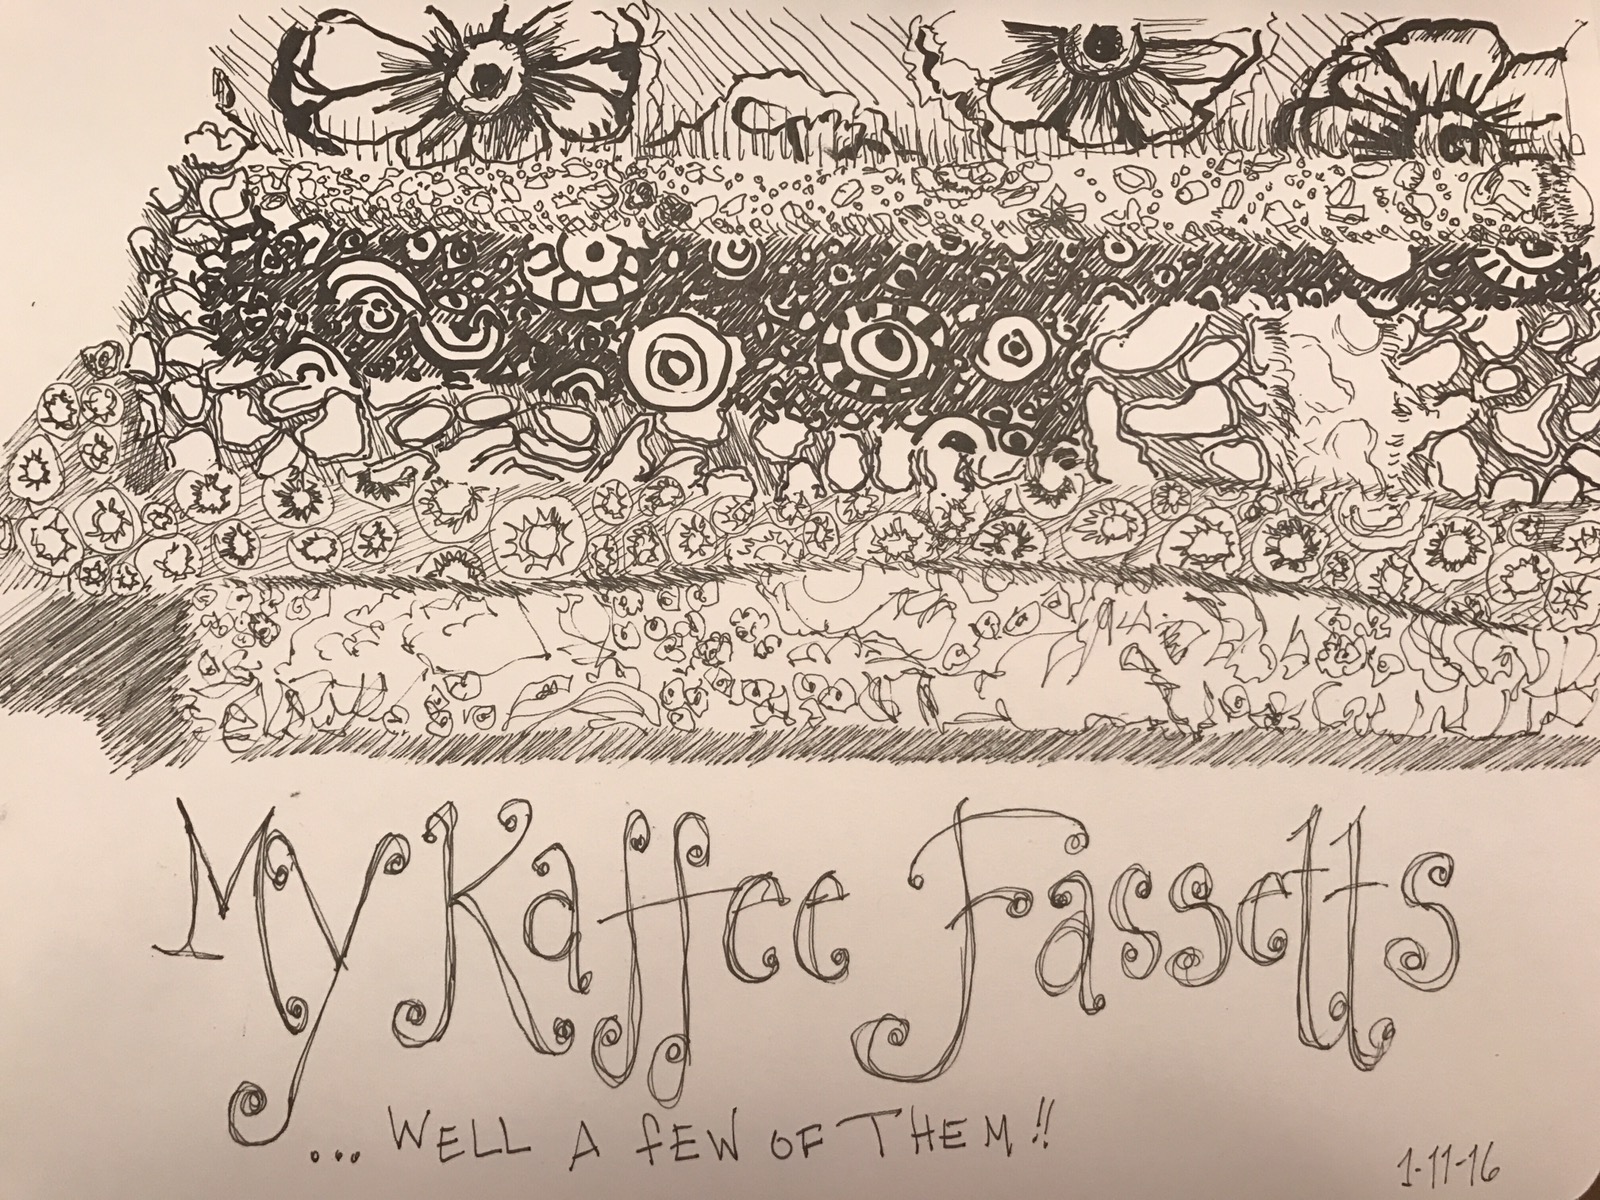 My Kaffee Fassetts
... WELL A FEW OF THEM!!
1-11-16